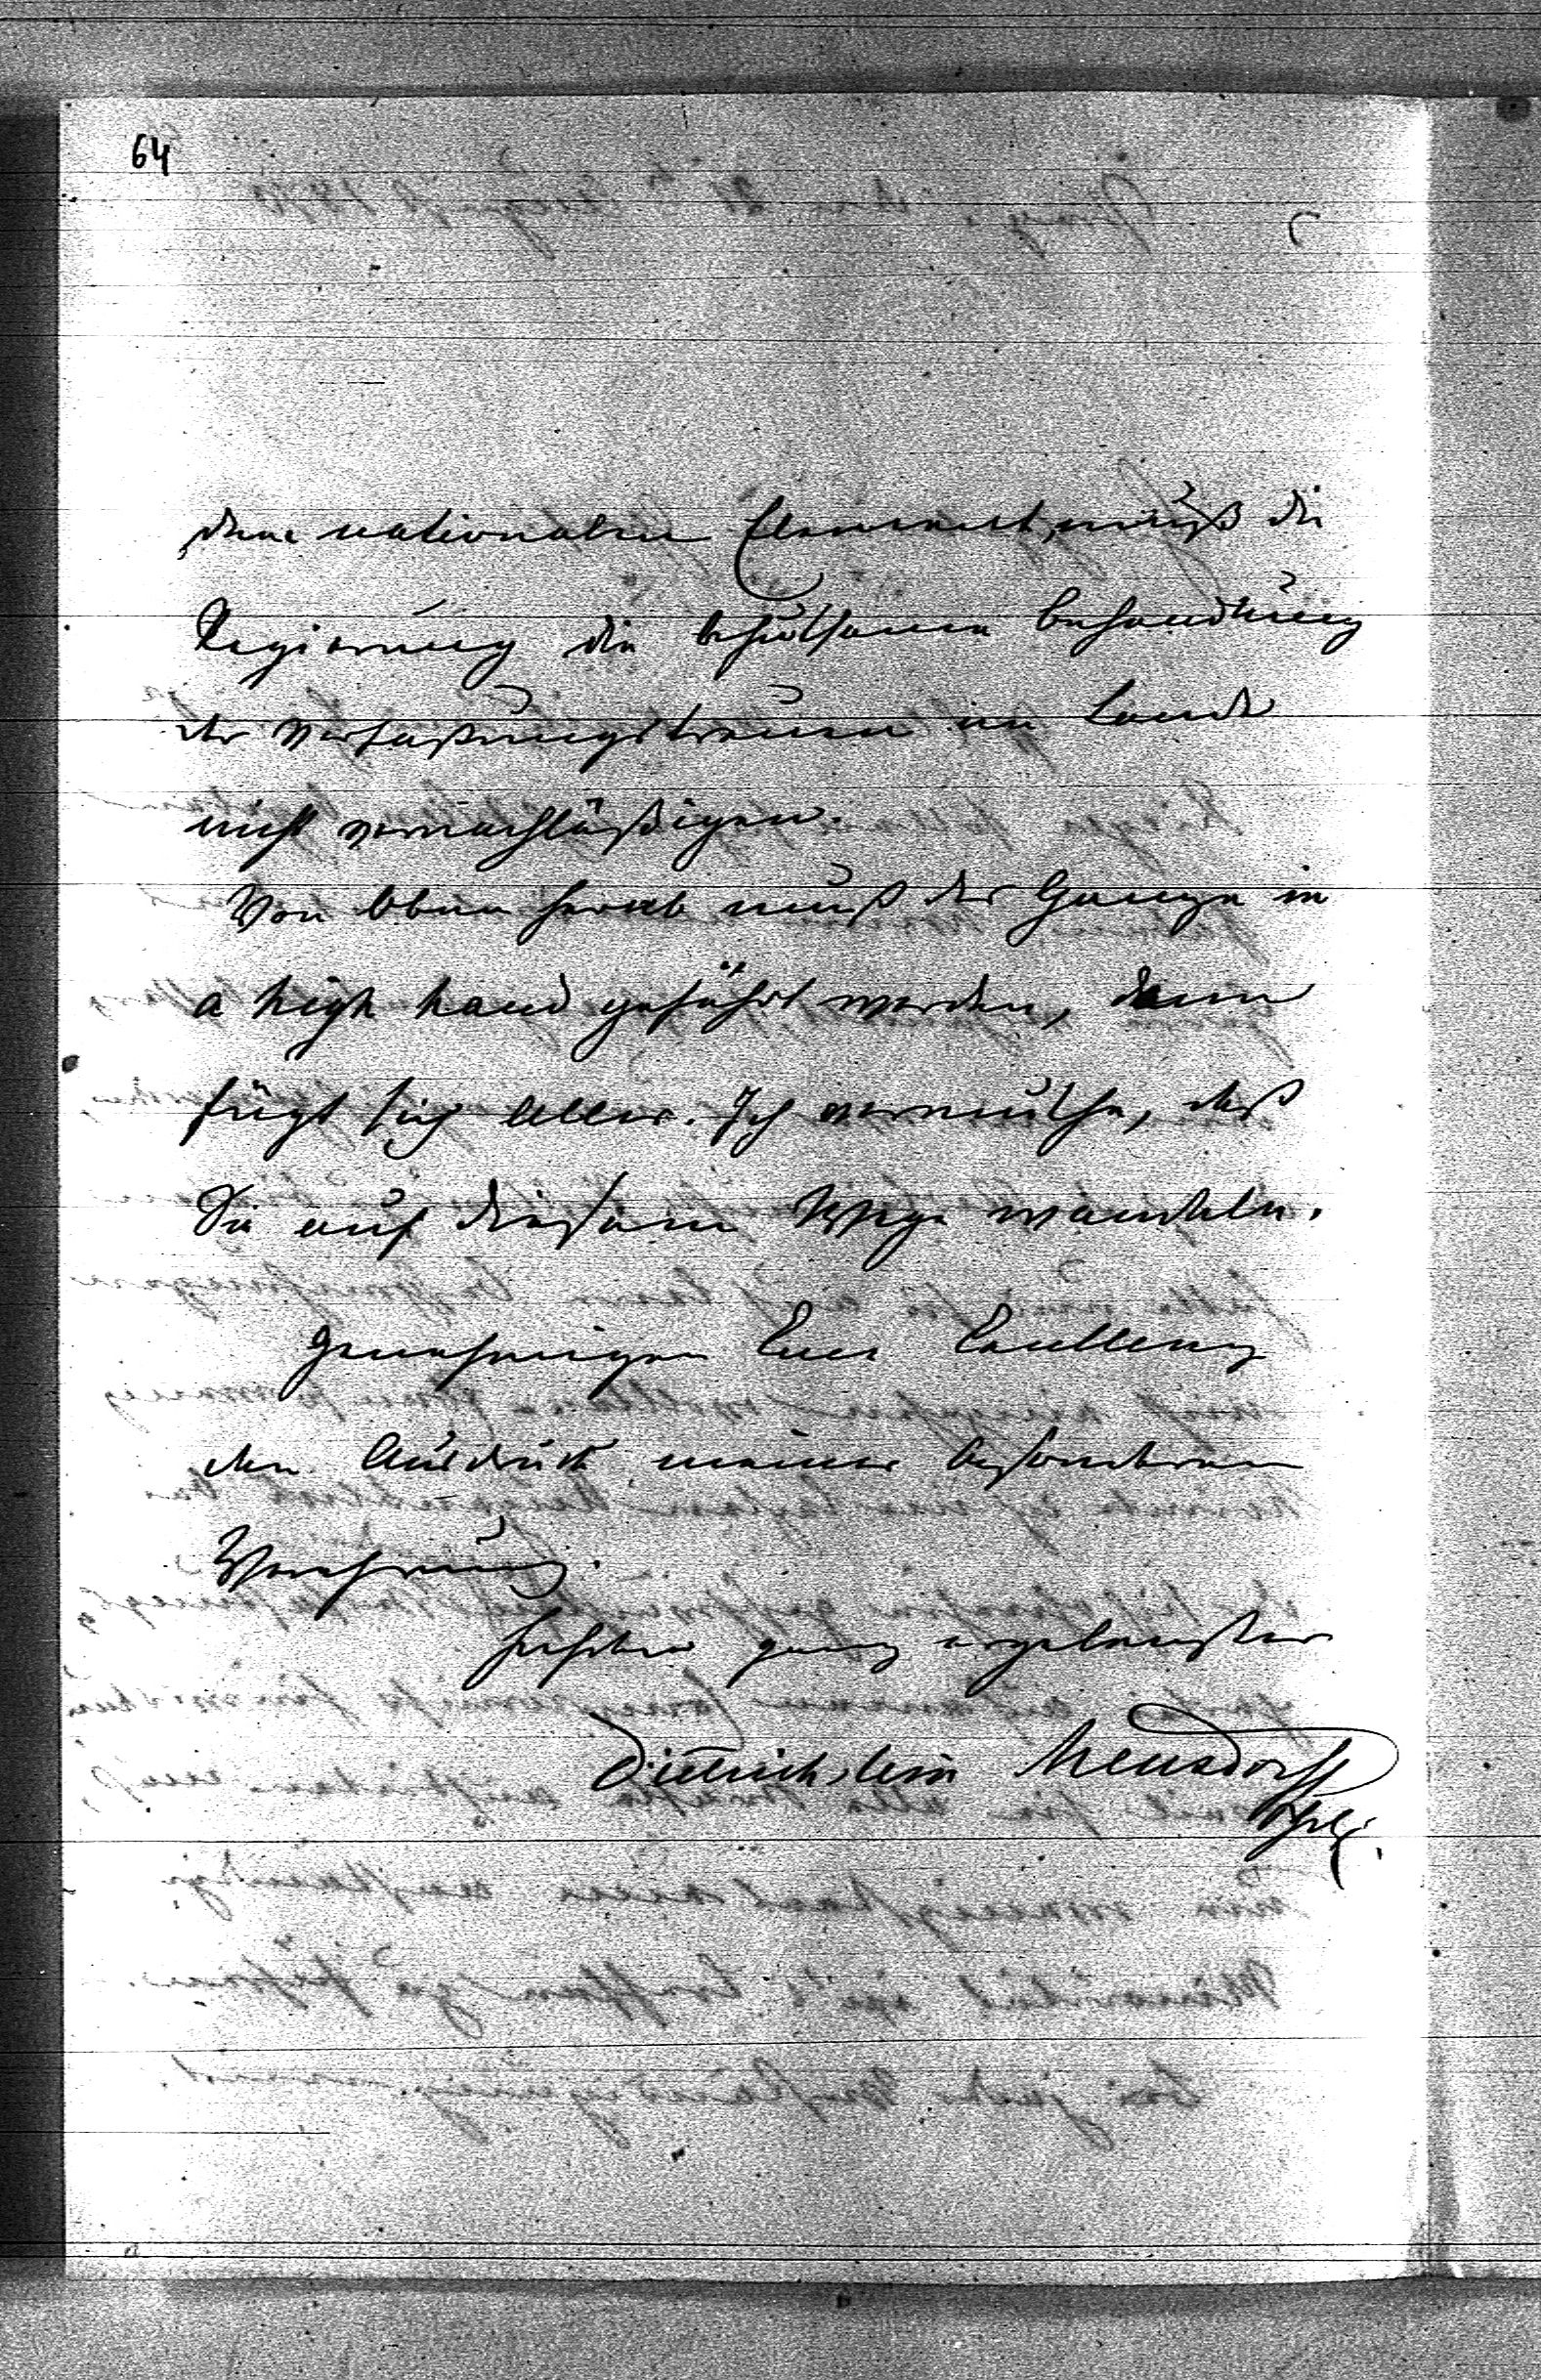 64
dem nationalen Element, muß die
Regierung die behutsame Behandlung
der Verfaßungstreuen im Lande
nicht vernachläßigen.
Von Oben herab muß das Ganze in
a high hand geführt werden, dann
fügt sich Alles. Ich vermuthe, daß
Sie auf diesem Wege wandeln.
Genehmigen Euer Excellenz
den Ausdruck meiner besonderen
Verehrung.
ganz ergebenster
Dietrichstein Mensdorff